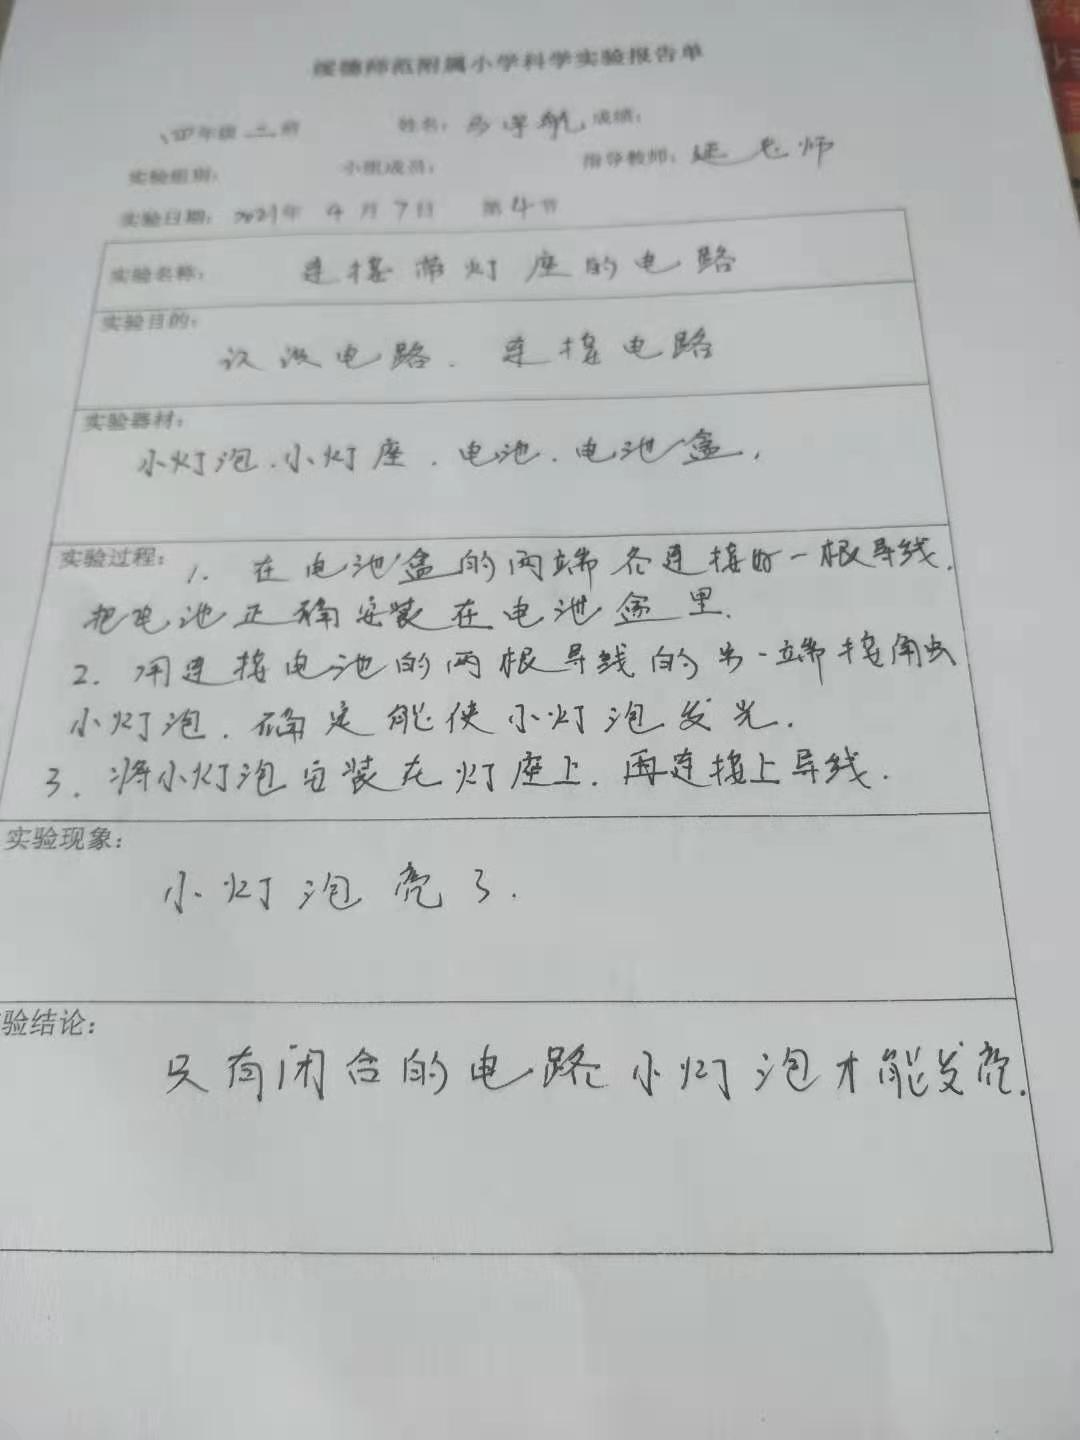 绥德师范附属小学科学实验报告单
四年级 二 班 姓名： 马 航 成绩：
实验组别： 小组成员： 指导教师：延老师
实验日期：2021年 4 月 7 日 第 4 节
实验名称： 连接带灯座的电路
实验目的：
认识电路．连接电路
实验器材：
小灯泡．小灯座．电池．电池盒，
实验过程：1．在电池盒的两端各连接好一根导线．
把电池正确安装在电池盒里．
2．用连接电池的两根导线的另一端接触
小灯泡．确定能使小灯泡发光．
3．将小灯泡安装在灯座上．再连接上导线．
实验现象：
小灯泡亮了．
验结论：
只有闭合的电路小灯泡才能发亮．